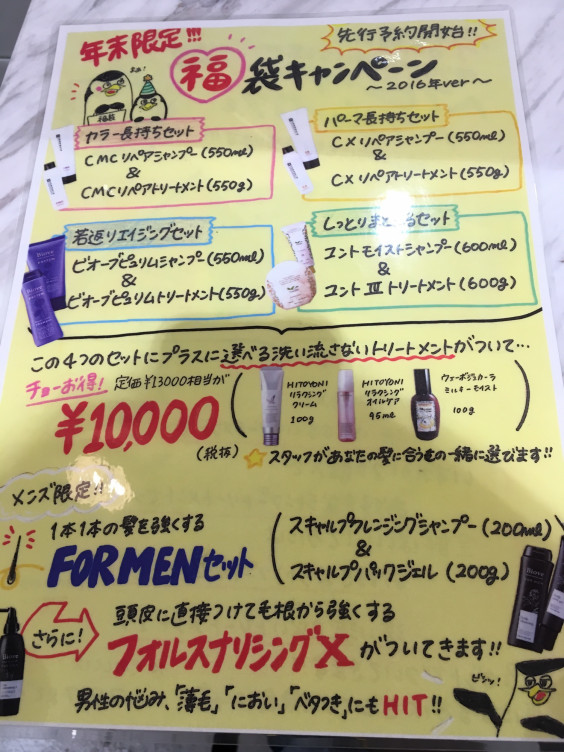 年末限定!!!
先行予約開始!!
福袋キャンペーン
～2016年ver～
福袋
カラー長持ちセット
CMCリペアシャンプー(550ml)
&
CMCリペアトリートメント(550g)
パーマ長持ちセット
CXリペアシャンプー(550ml)
&
CXリペアトリートメント(550g)
若返りエイジングセット
ビオーブピュリムシャンプー(550ml)
&
ビオーブピュリムトリートメント(550g)
ユントモイストシャンプー(600ml)
&
ユントⅢトリートメント(600g)
この4つのセットにプラスに選べる洗い流さないトリートメントがついて…
チョーお得!
定価¥13000相当が
¥10,000
(税抜)
HITOYONI
リラクシング
クリーム
100g
HITOYONI
リラクシング
オイルケア
95ml
ウェーボジュカーラ
ミルキーモイスト
100g
スタッフがあなたの髪に合うもの一緒に選びます!!
メンズ限定!!
1本1本の髪を強くする
FOR MENセット
スキャルプクレンジングシャンプー(200ml)
&
スキャルプパックジェル(200g)
さらに!
頭皮に直接つけても根から強くする
フォルスナリシングX がついてきます!!
男性の悩み、「薄毛」「におい」「ベタつき」にもHIT!!